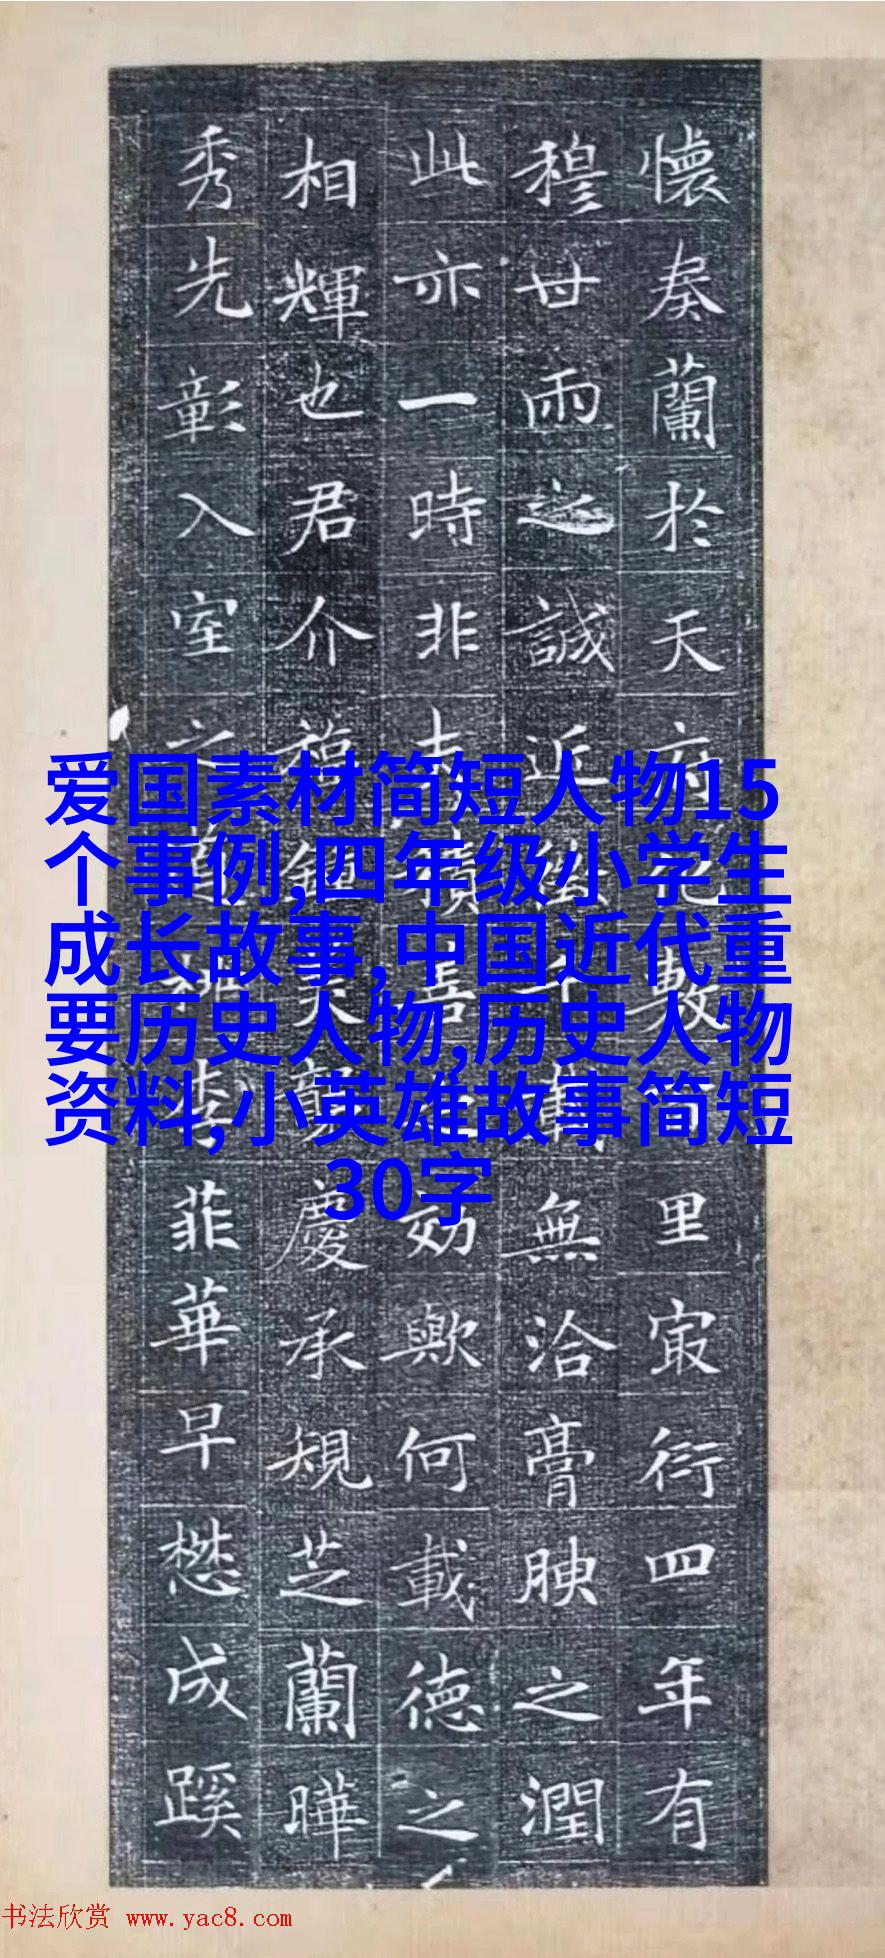 懷奏蘭於天府數里冣衍四年有
穆世雨之誠近無洽膏腴之潤
此亦一時非夫積善効歟何載徳之
相輝也君介福美慶承規芝蘭曄
秀先彰入室之桃李菲華早懋成蹊
爱国素材简短人物15
个事例,四年级小学生
成长故事,中国近代重
要历史人物,历史人物
资料,小英雄故事简短
30字
书法欣赏 www.yac8.com